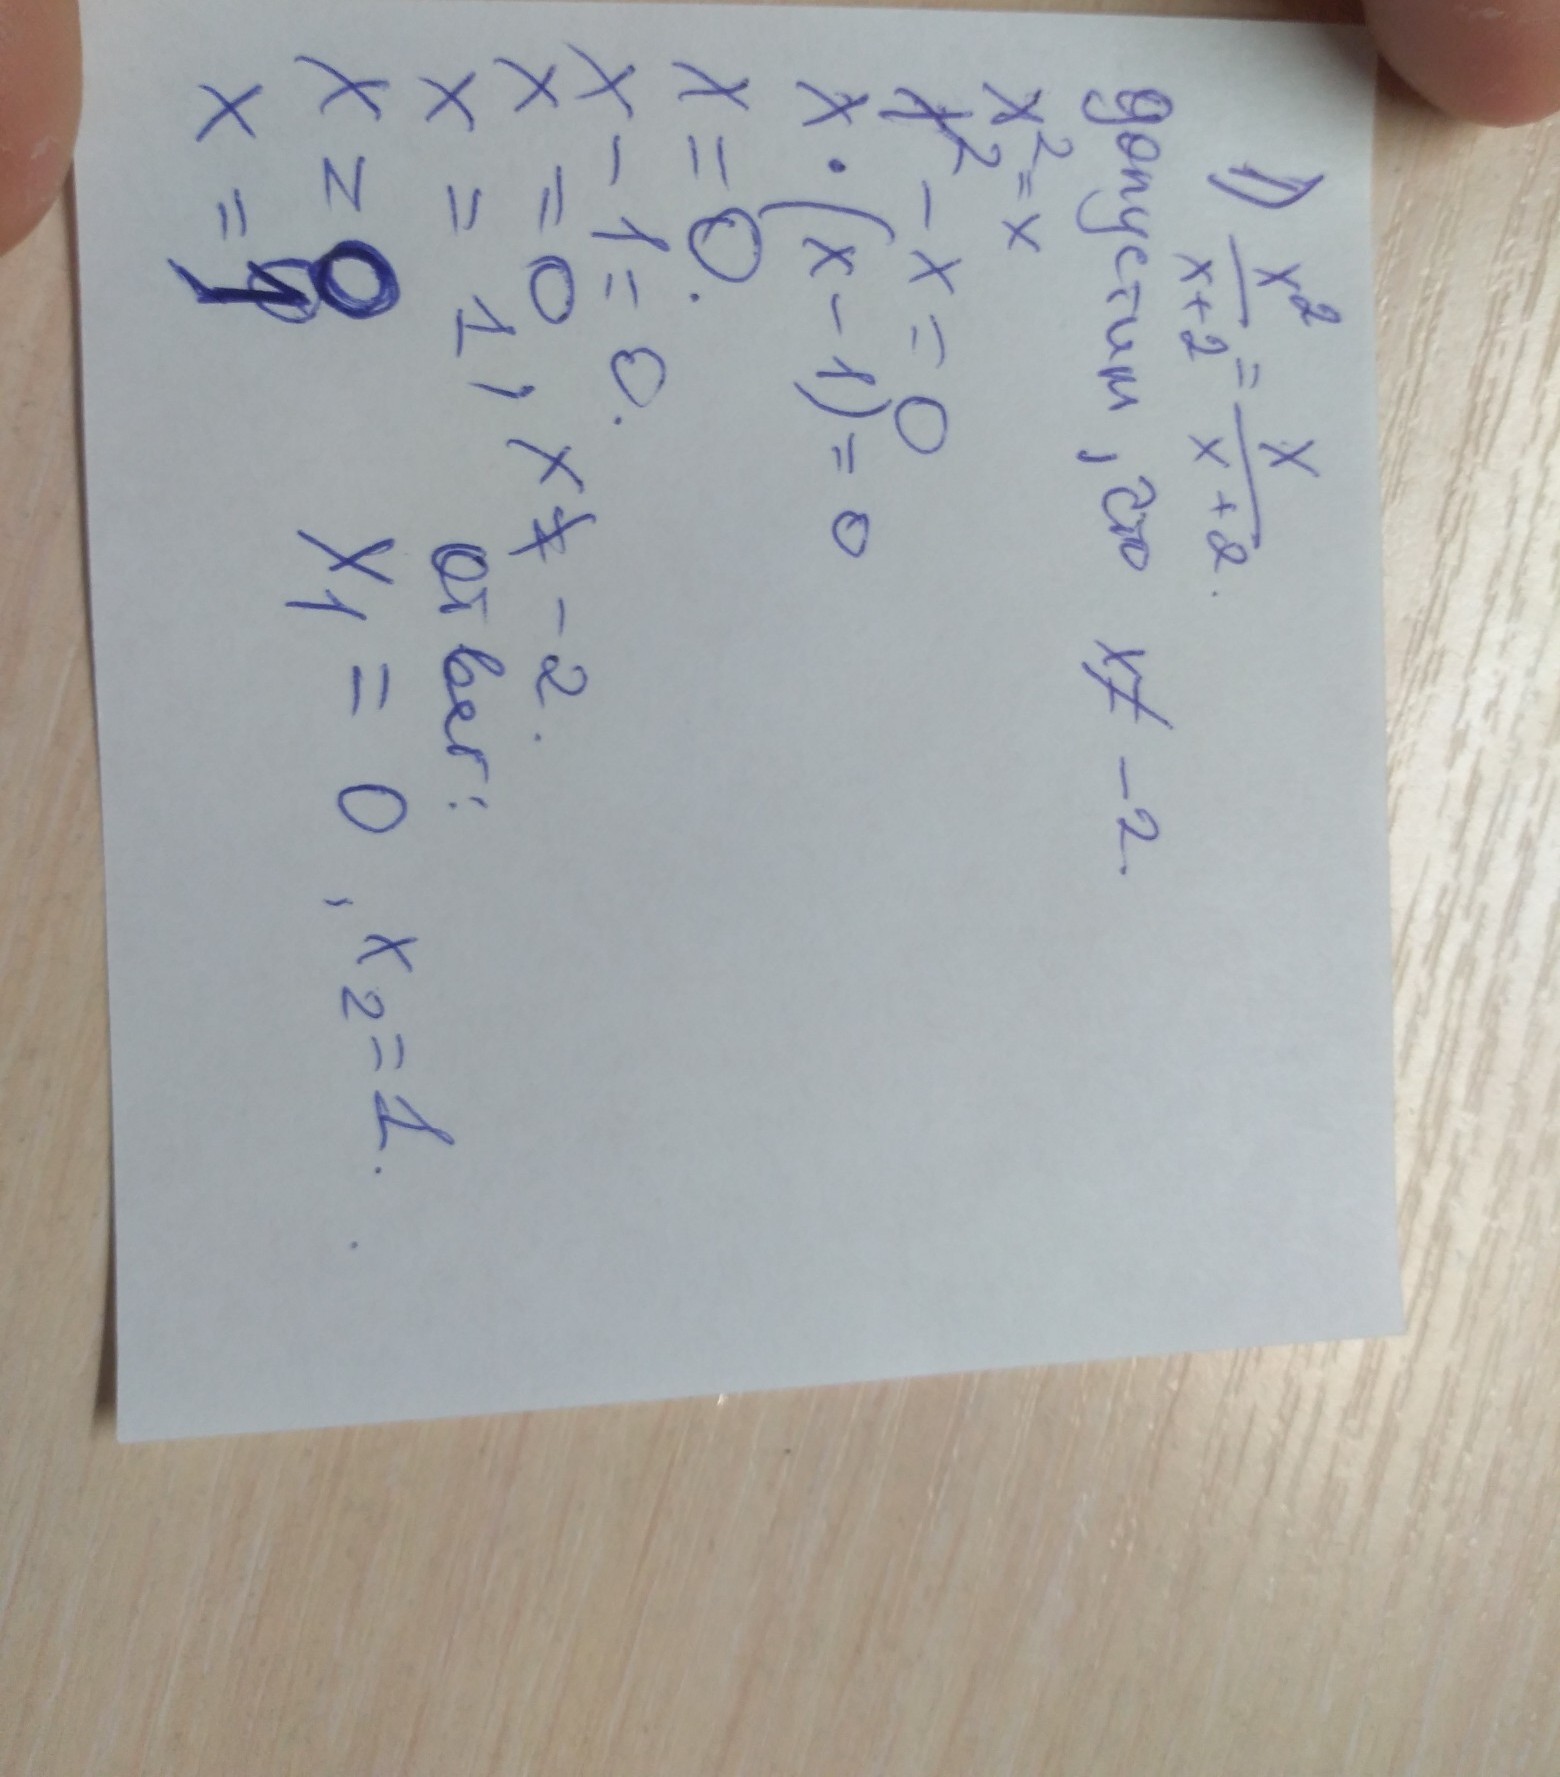 1) x²/x+2 = x/x+2.
допустим, что x ≠ -2.
x² = x
x² - x = 0
x · (x - 1) = 0
x = 0.
x - 1 = 0.
x = 0
x = 1, x ≠ -2.
x = 0
x = 1
Ответ:
x₁ = 0, x₂ = 1.